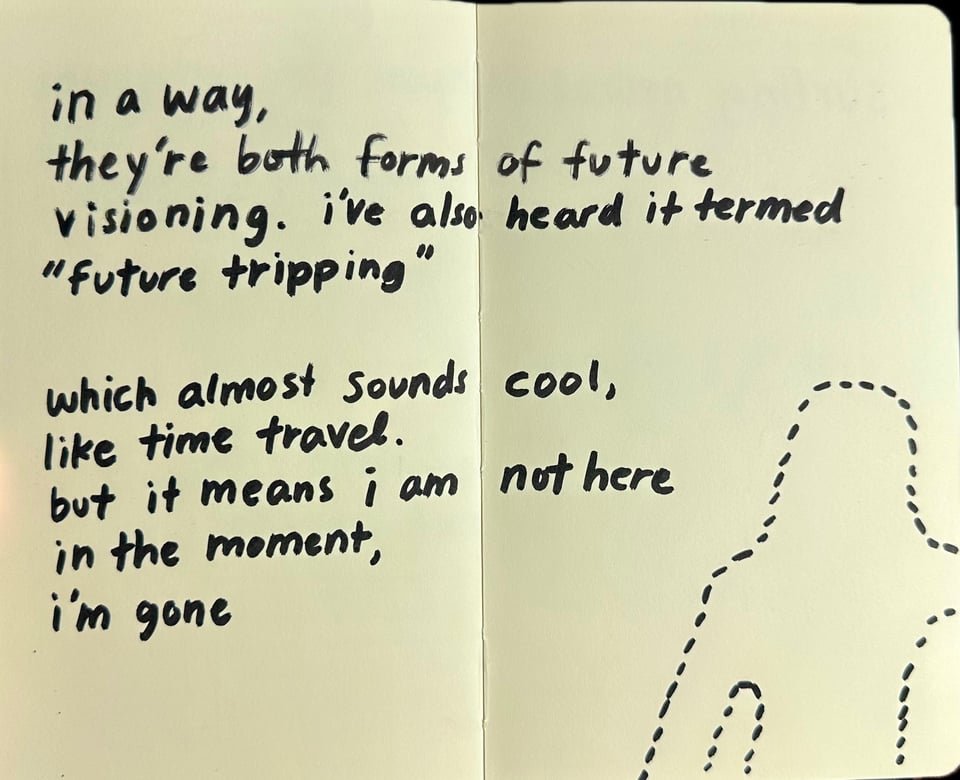 in a way,
they're both forms of future
visioning. i've also heard it termed
"future tripping"
which almost sounds cool,
like time travel.
but it means i am not here
in the moment,
i'm gone